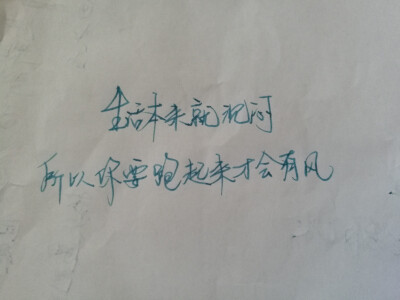 生活本来就沉闷
所以你要跑起来才会有风